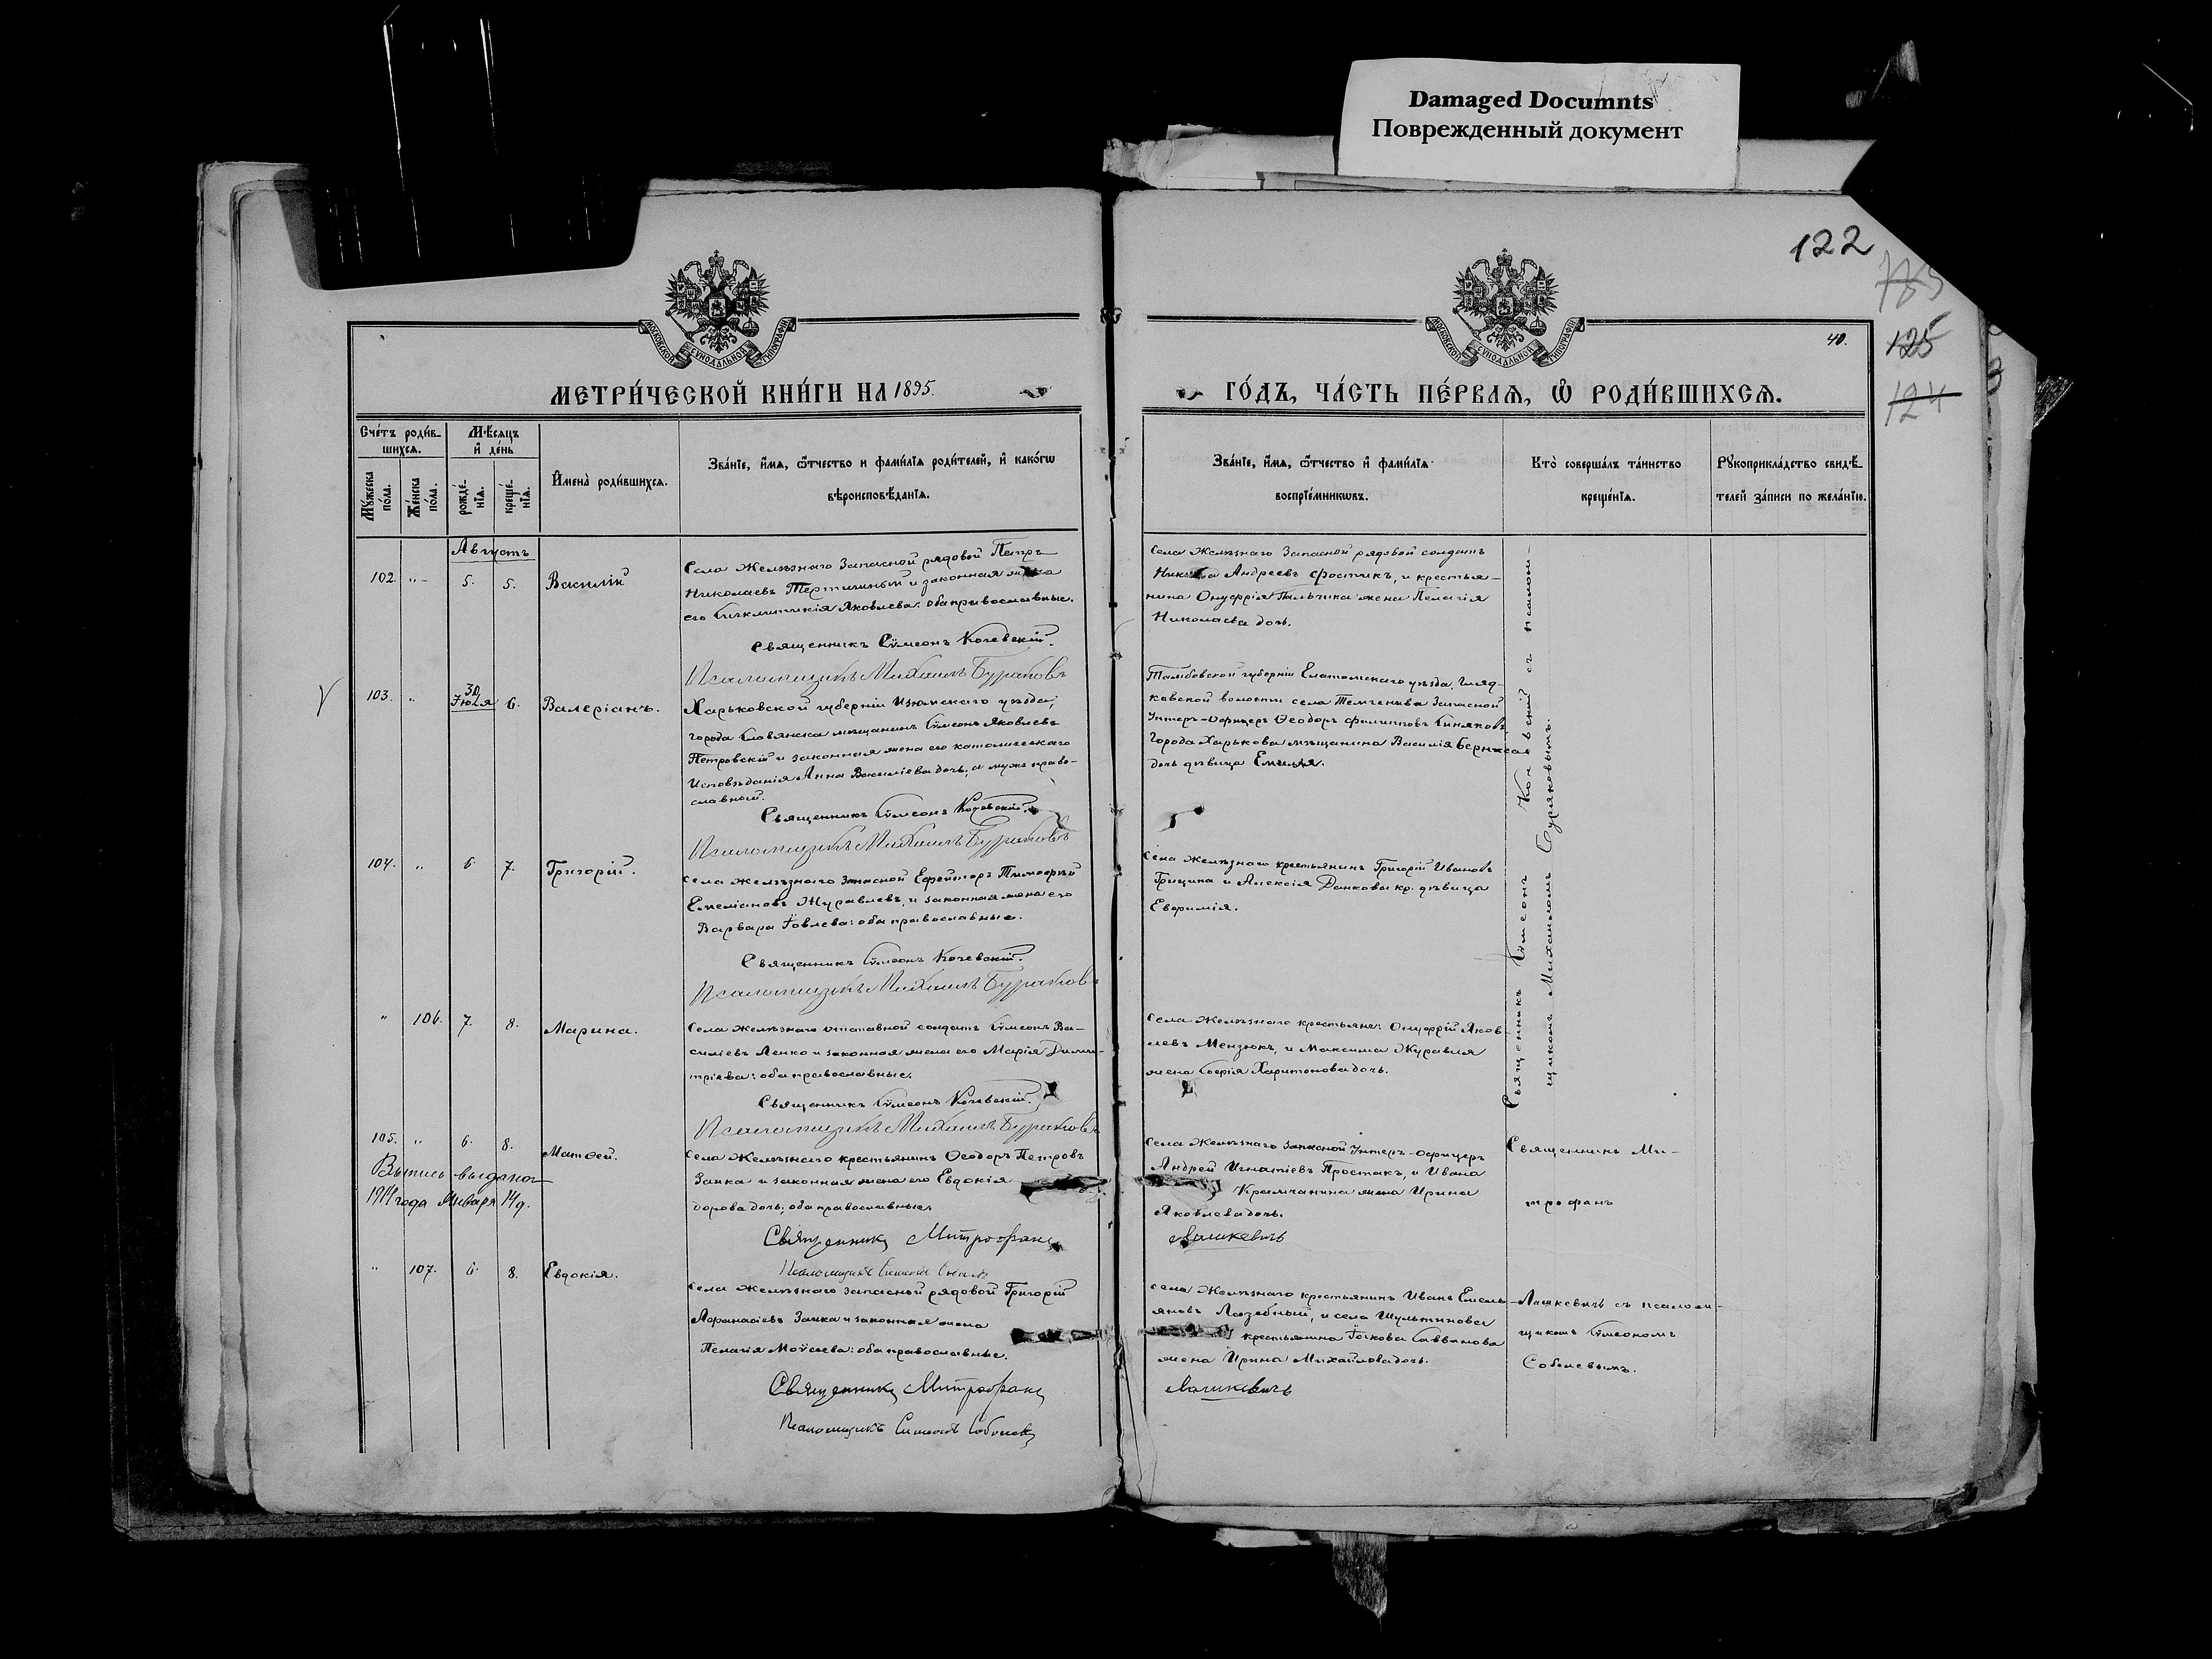 Damaged Documnts
Поврежденный документ
122
125
124
40.
МОСКОВСКОЙ СУНОДАЛЬНОЙ ТИПОГРАФІИ
МОСКОВСКОЙ СУНОДАЛЬНОЙ ТИПОГРАФІИ
МЕТРИ́ЧЕСКОЙ КНИ́ГИ НА 1895.
ГО́ДЪ, ЧА́СТЬ ПЕ́РВАѦ, Ѡ҆ РОДИ́ВШИХСѦ.
Сче́тъ роди́в-
шихсѧ.
Мꙋ́жеска по́ла.
Же́нска по́ла.
Мѣ́сѧцъ
и҆ де́нь
рожде́-
нїѧ.
креще́-
нїѧ.
И҆мена̀ роди́вшихсѧ.
Зва́нїе, и҆́мѧ, ѻ҆́тчество и фами́лїѧ роди́телей, и҆ како́гѡ
вѣроисповѣ́данїѧ.
Зва́нїе, и҆́мѧ, ѻ҆́тчество и҆ фами́лїѧ
воспрїе́мникѡвъ.
Кто̀ соверша́лъ та́инство
креще́нїѧ.
Рꙋкоприкла́дство свидѣ́-
телей за́писи по жела́нїю.
Августъ
102. "- 5. 5. Василій
Села Желѣзнаго Запасной рядовой Петръ
Николаевъ Тертичный и законная жена
его Яковлева: оба православные.
Священникъ Сѵмеонъ Кочевскій.
Псаломщикъ Михаилъ Бураковъ
Села Желѣзнаго Запасной рядовой солдатъ
Никита Андреевъ Фостикъ, и крестья-
нина Онуфрія Пальчика жена Пелагія
Николаева дочь.
103. " 30 Іюля 6. Валеріанъ.
Харьковской губерніи Изюмскаго уѣзда,
города Славянска мѣщанинъ Сѵмеонъ Яковлевъ
Петровскій и законная жена его католическаго
Исповѣданія Анна Васильева дочь, а мужъ право-
славный.
Священникъ Сѵмеонъ Кочевскій.
Псаломщикъ Михаилъ Бураковъ
Тамбовской губерніи Елатомскаго уѣзда, Гляд-
ковской волости села Темгенева Запасной
Унтеръ-Офицеръ Ѳеодоръ Филипповъ Синяковъ
Города Харькова мѣщанина Василія
дочь дѣвица Емилія.
104. " 6. 7. Григорій.
Села Желѣзнаго Запасной Ефрейторъ Тимоѳей
Емеліановъ Журавлевъ, и законная жена его
Варвара Іовлева: оба православные.
Священникъ Сѵмеонъ Кочевскій.
Псаломщикъ Михаилъ Бураковъ
Села Желѣзнаго крестьянинъ Григорій Ивановъ
Грицина и Алексія Данкова кр. дѣвица
Евфимія.
" 106. 7. 8. Марина.
Села Желѣзнаго отставной солдатъ Сѵмеонъ Ва-
силіевъ Ленко и законная жена его Марія Дими-
тріева: оба православные.
Священникъ Сѵмеонъ Кочевскій.
Псаломщикъ Михаилъ Бураковъ
Села Желѣзнаго крестьяне: Онуфрій Яков-
левъ Мензюкъ, и Максима Журавля
жена Софія Харитонова дочь.
Священникъ Сѵмеонъ Кочевскій съ псалом-
щикомъ Михаиломъ Бураковымъ.
105. " 6. 8. Матѳей.
Выпись выдана
1914 года Января 14 д.
Села Желѣзнаго крестьянинъ Ѳеодоръ Петровъ
Заика и законная жена его Евдокія
дорова дочь; оба православные.
Священникъ Митрофанъ
Села Желѣзнаго запасной Унтеръ-Офицеръ
Андрей Игнатіевъ Простакъ, и Ивана
Крамчанина жена Ирина
Яковлева дочь.
Лашкевичъ
Священникъ Ми-
трофанъ
" 107. 6. 8. Евдокія.
Псаломщикъ Симеонъ
Села Желѣзнаго запасный рядовой Григорій
Аѳанасіевъ Заика и законная жена
Пелагія Моѵсеева: оба православные.
Священникъ Митрофанъ
Псаломщикъ Симеонъ Соболевъ
Села Желѣзнаго крестьянинъ Иванъ Емель-
яновъ Лазебный, и села Шультиновки
крестьянина Іакова Саввинова
жена Ирина Михайлова дочь.
Лашкевичъ
Лашкевичъ съ псалом-
щикомъ Сѵмеономъ
Соболевымъ.